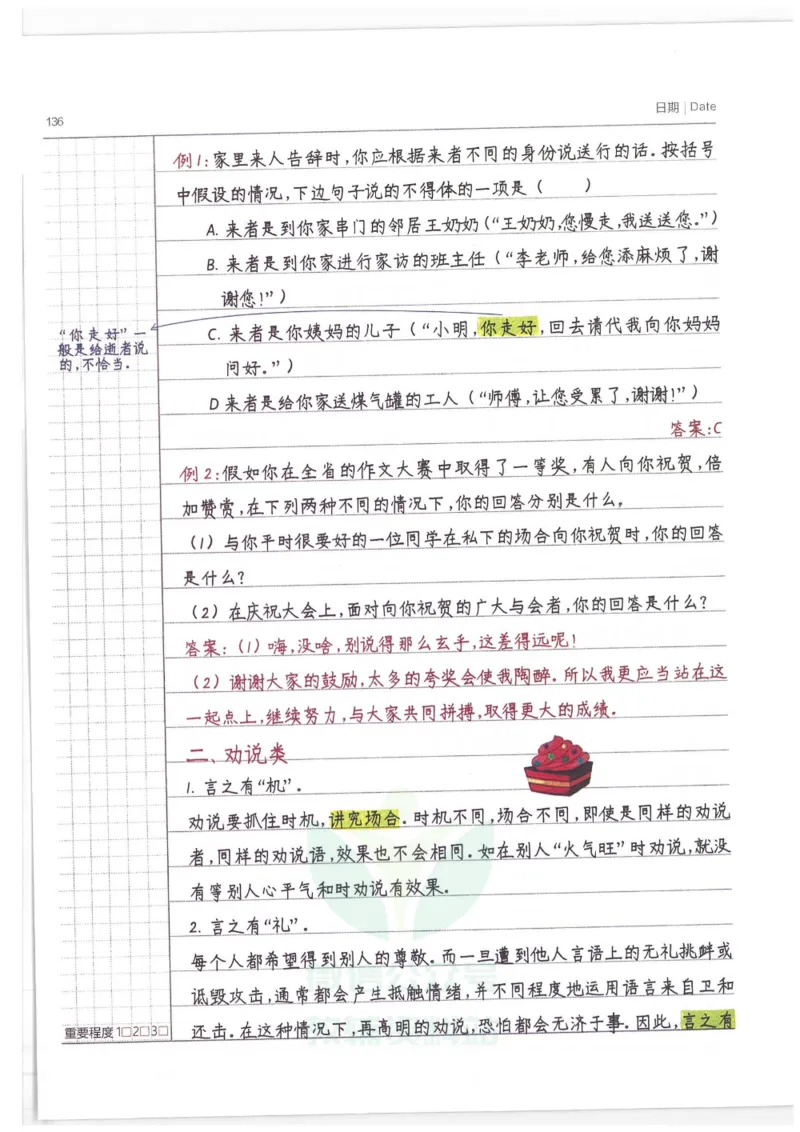 136
日期 | Date
例1:家里来人告辞时,你应根据来者不同的身份说送行的话.按括号
中假设的情况,下边句子说的不得体的一项是(    )
A. 来者是到你家串门的邻居王奶奶(“王奶奶,您慢走,我送送您.”)
B. 来者是到你家进行家访的班主任(“李老师,给您添麻烦了,谢
谢您!”)
“你走好”一
般是给逝者说
的,不恰当.
C. 来者是你姨妈的儿子(“小明,你走好,回去请代我向你妈妈
问好.”)
D 来者是给你家送煤气罐的工人(“师傅,让您受累了,谢谢!”)
答案:C
例2:假如你在全省的作文大赛中取得了一等奖,有人向你祝贺,倍
加赞赏,在下列两种不同的情况下,你的回答分别是什么,
(1)与你平时很要好的一位同学在私下的场合向你祝贺时,你的回答
是什么?
(2)在庆祝大会上,面对向你祝贺的广大与会者,你的回答是什么?
答案:(1)嗨,没啥,别说得那么玄乎,这差得远呢!
(2)谢谢大家的鼓励,太多的夸奖会使我陶醉.所以我更应当站在这
一起点上,继续努力,与大家共同拼搏,取得更大的成绩.
二、劝说类
1. 言之有“机”.
劝说要抓住时机,讲究场合.时机不同,场合不同,即使是同样的劝说
者,同样的劝说语,效果也不会相同.如在别人“火气旺”时劝说,就没
有等别人心平气和时劝说有效果.
2. 言之有“礼”.
每个人都希望得到别人的尊敬.而一旦遭到他人言语上的无礼挑衅或
诋毁攻击,通常都会产生抵触情绪,并不同程度地运用语言来自卫和
还击.在这种情况下,再高明的劝说,恐怕都会无济于事.因此,言之有
重要程度 1□2□3□